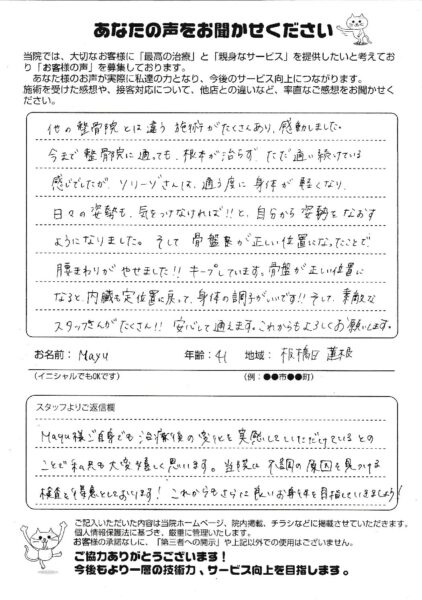 あなたの声をお聞かせください
当院では、大切なお客様に「最高の治療」と「親身なサービス」を提供したいと考えてお
り「お客様の声」を募集しております。
あなた様のお声が実際に私達の力となり、今後のサービス向上につながります。
施術を受けた感想や、接客対応について、他店との違いなど、率直なご感想をお聞かせく
ださい。
他の整骨院とは違う施術がたくさんあり、感動しました。
今まで整骨院に通っても、根本が治らず、ただ通い続けている
感じでしたが、ソリーゾさんは、通う度に身体が軽くなり、
日々の姿勢も、気をつけなければ!!と、自分から姿勢をなおす
ようになりました。そして骨盤が正しい位置になったことで
腰まわりがやせました!!キープしています。骨盤が正しい位置に
なると、内臓も定位置に戻って、身体の調子がいいです!!そして、素敵な
スタッフさんがたくさん!!安心して通えます。これからもよろしくお願いします。
お名前: Mayu 年齢: 41 地域: 板橋区 蓮根
(イニシャルでもOKです) (例:●●市●●町)
スタッフよりご返信欄
Mayu様ご自身でも治療後の変化を実感していただけているとの
ことで私共も大変嬉しく思います。当院は不調の原因を見つける
検査を得意としております!これからもさらに良いお身体を目指していきましょう!
ご記入いただいた内容は当院ホームページ、院内掲載、チラシなどに掲載させていただきます。
個人情報保護法に基づき、厳重に管理いたします。
お客様の承諾なしに、「第三者への開示」や上記以外での使用はございません。
ご協力ありがとうございます!
今後もより一層の技術力、サービス向上を目指します。